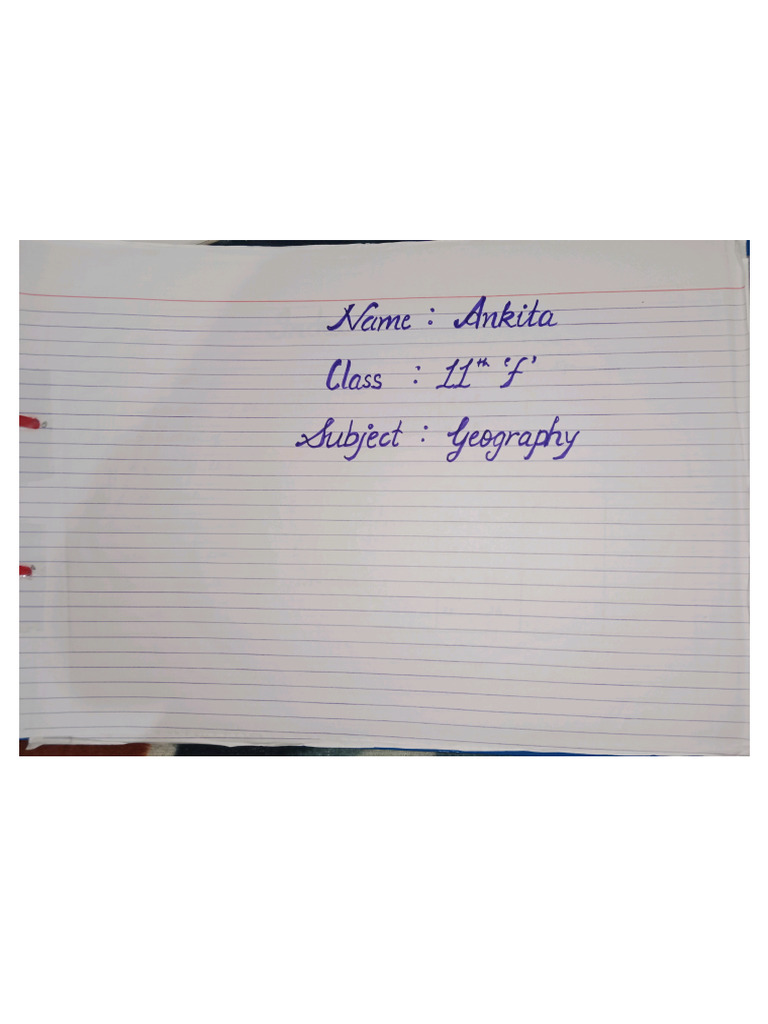 Name : Ankita
Class : 11th 'f'
Subject : Geography